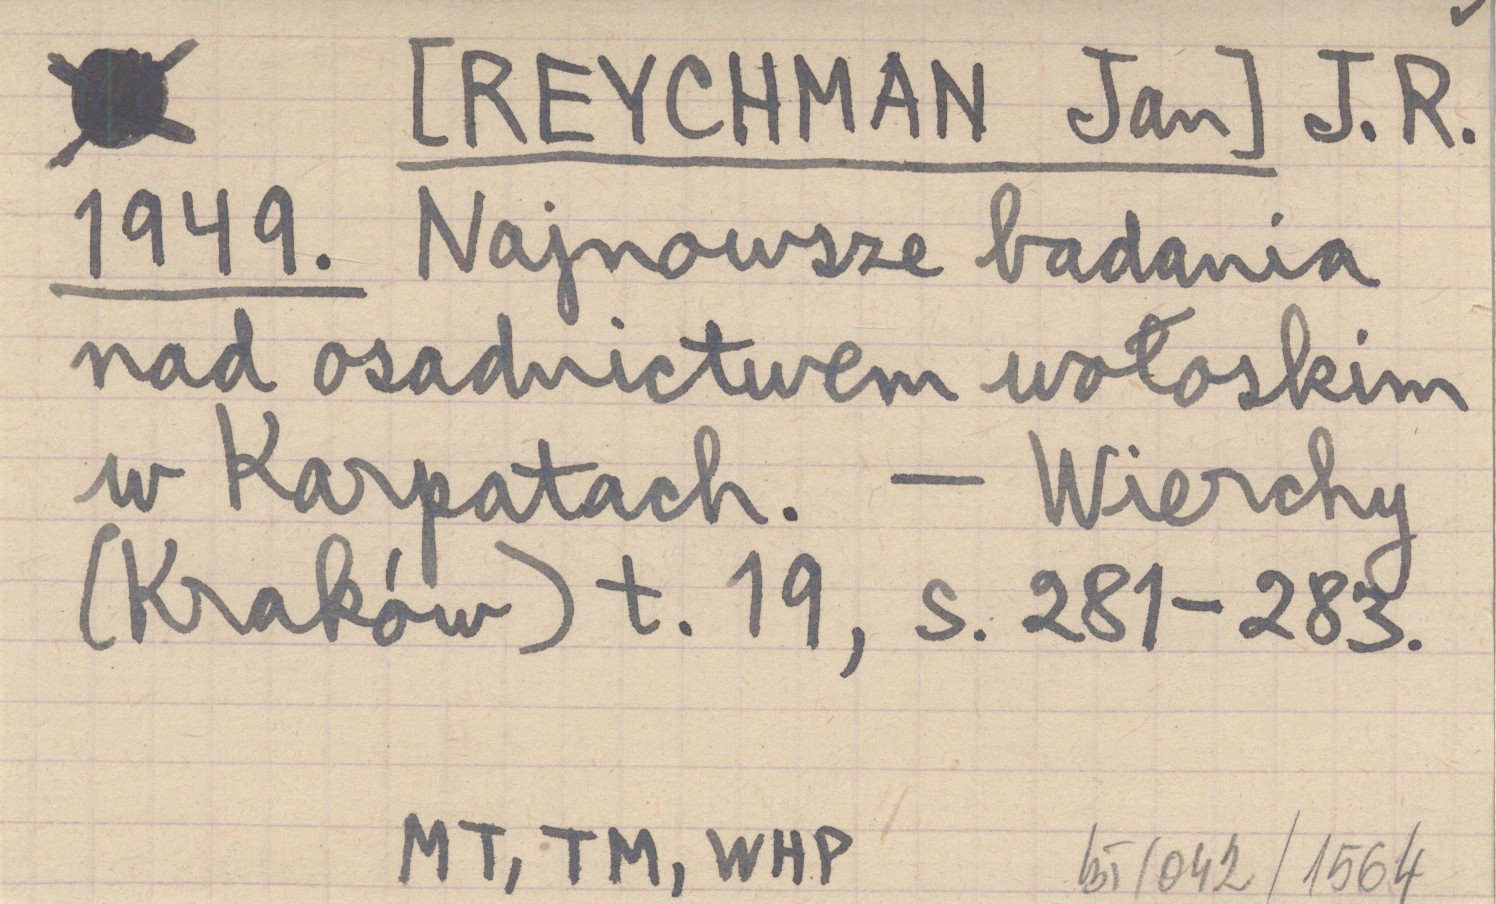 [REYCHMAN Jan] J.R.
1949. Najnowsze badania
nad osadnictwem wołoskim
w Karpatach. — Wierchy
(Kraków) t. 19, s. 281-283.
MT, TM, WHP
/042/1564